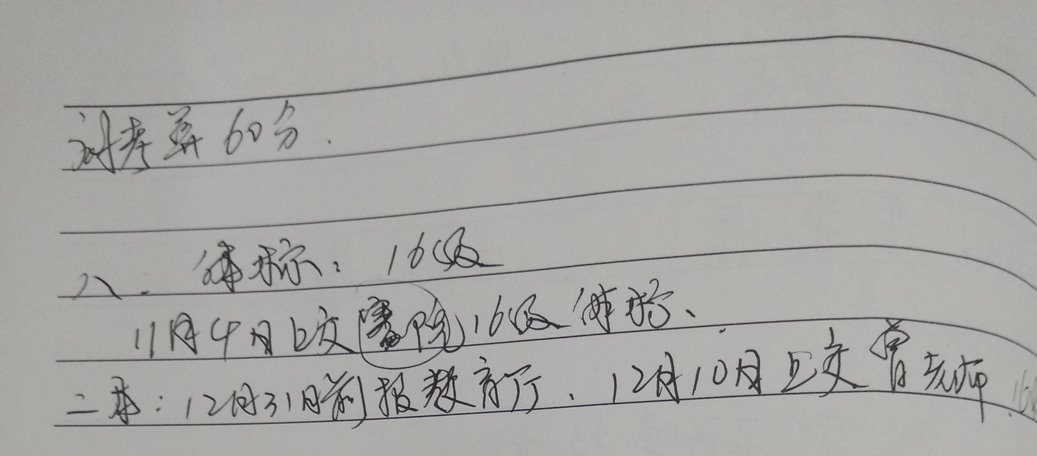 补考算60分.
八、体标：16级
11月4日上交 16级体标、
二本：12月31日前报教育厅、12月10日上交曾老师